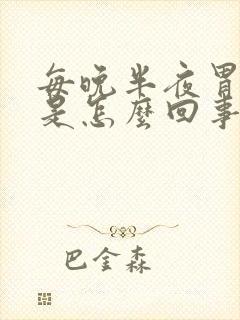 每晚半夜胃
是怎麼回事
巴金森